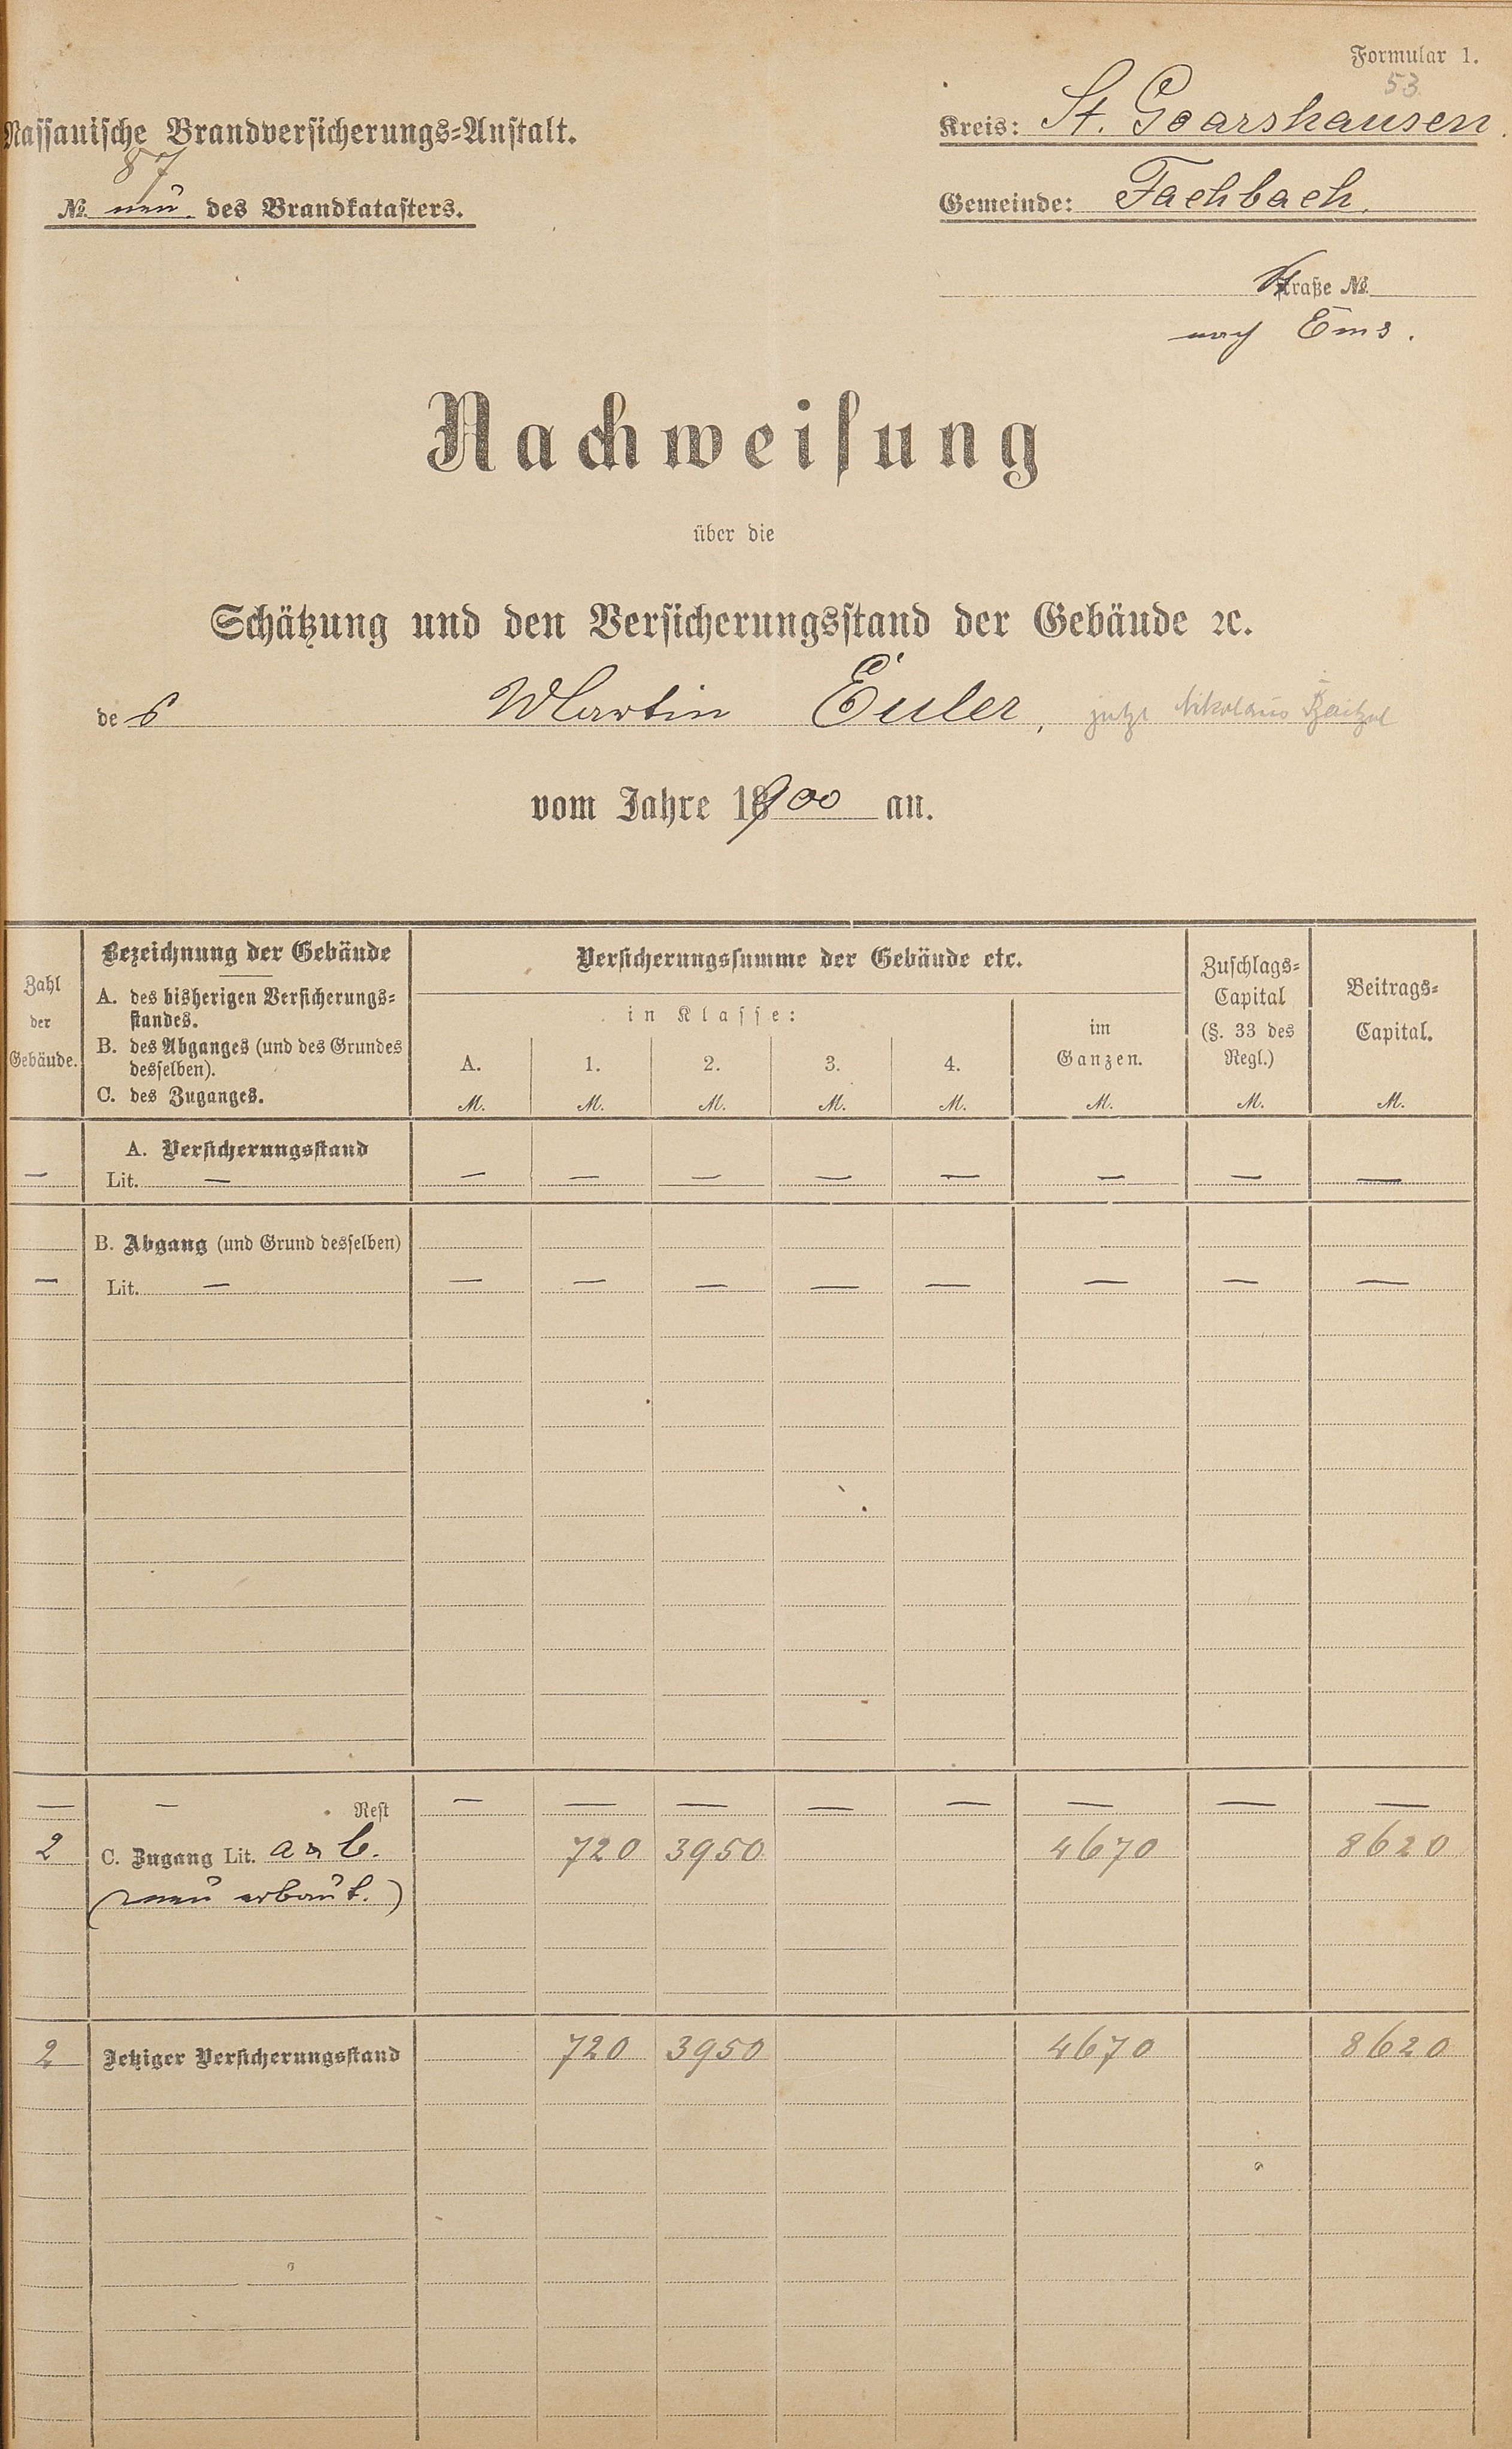 Formular 1.
53
Nassauische Brandversicherungs-Anstalt.
Kreis: St. Goarshausen.
87
№ neu des Brandkatasters.
Gemeinde: Fachbach.
Straße №
nach Ems.
Nachweisung
über die
Schätzung und den Versicherungsstand der Gebäude ꝛc.
des Martin Euler, jetzt Nikolaus
vom Jahre 1900 an.
Zahl der Gebäude.
Bezeichnung der Gebäude
A. des bisherigen Versicherungs-
standes.
B. des Abganges (und des Grundes
desselben).
C. des Zuganges.
Versicherungssumme der Gebäude etc.
in Klasse:
A. 1. 2. 3. 4.
im
Ganzen.
Zuschlags-
Capital
(§. 33 des
Regl.)
Beitrags-
Capital.
M. M. M. M. M. M. M. M.
A. Versicherungsstand
— Lit. — — — — — — — — —
B. Abgang (und Grund desselben)
— Lit. — — — — — — — — —
— — Rest — — — — — — — —
2 C. Zugang Lit. a & b. 720 3950 4670 8620
(neu erbaut.)
2 Jetziger Versicherungsstand 720 3950 4670 8620